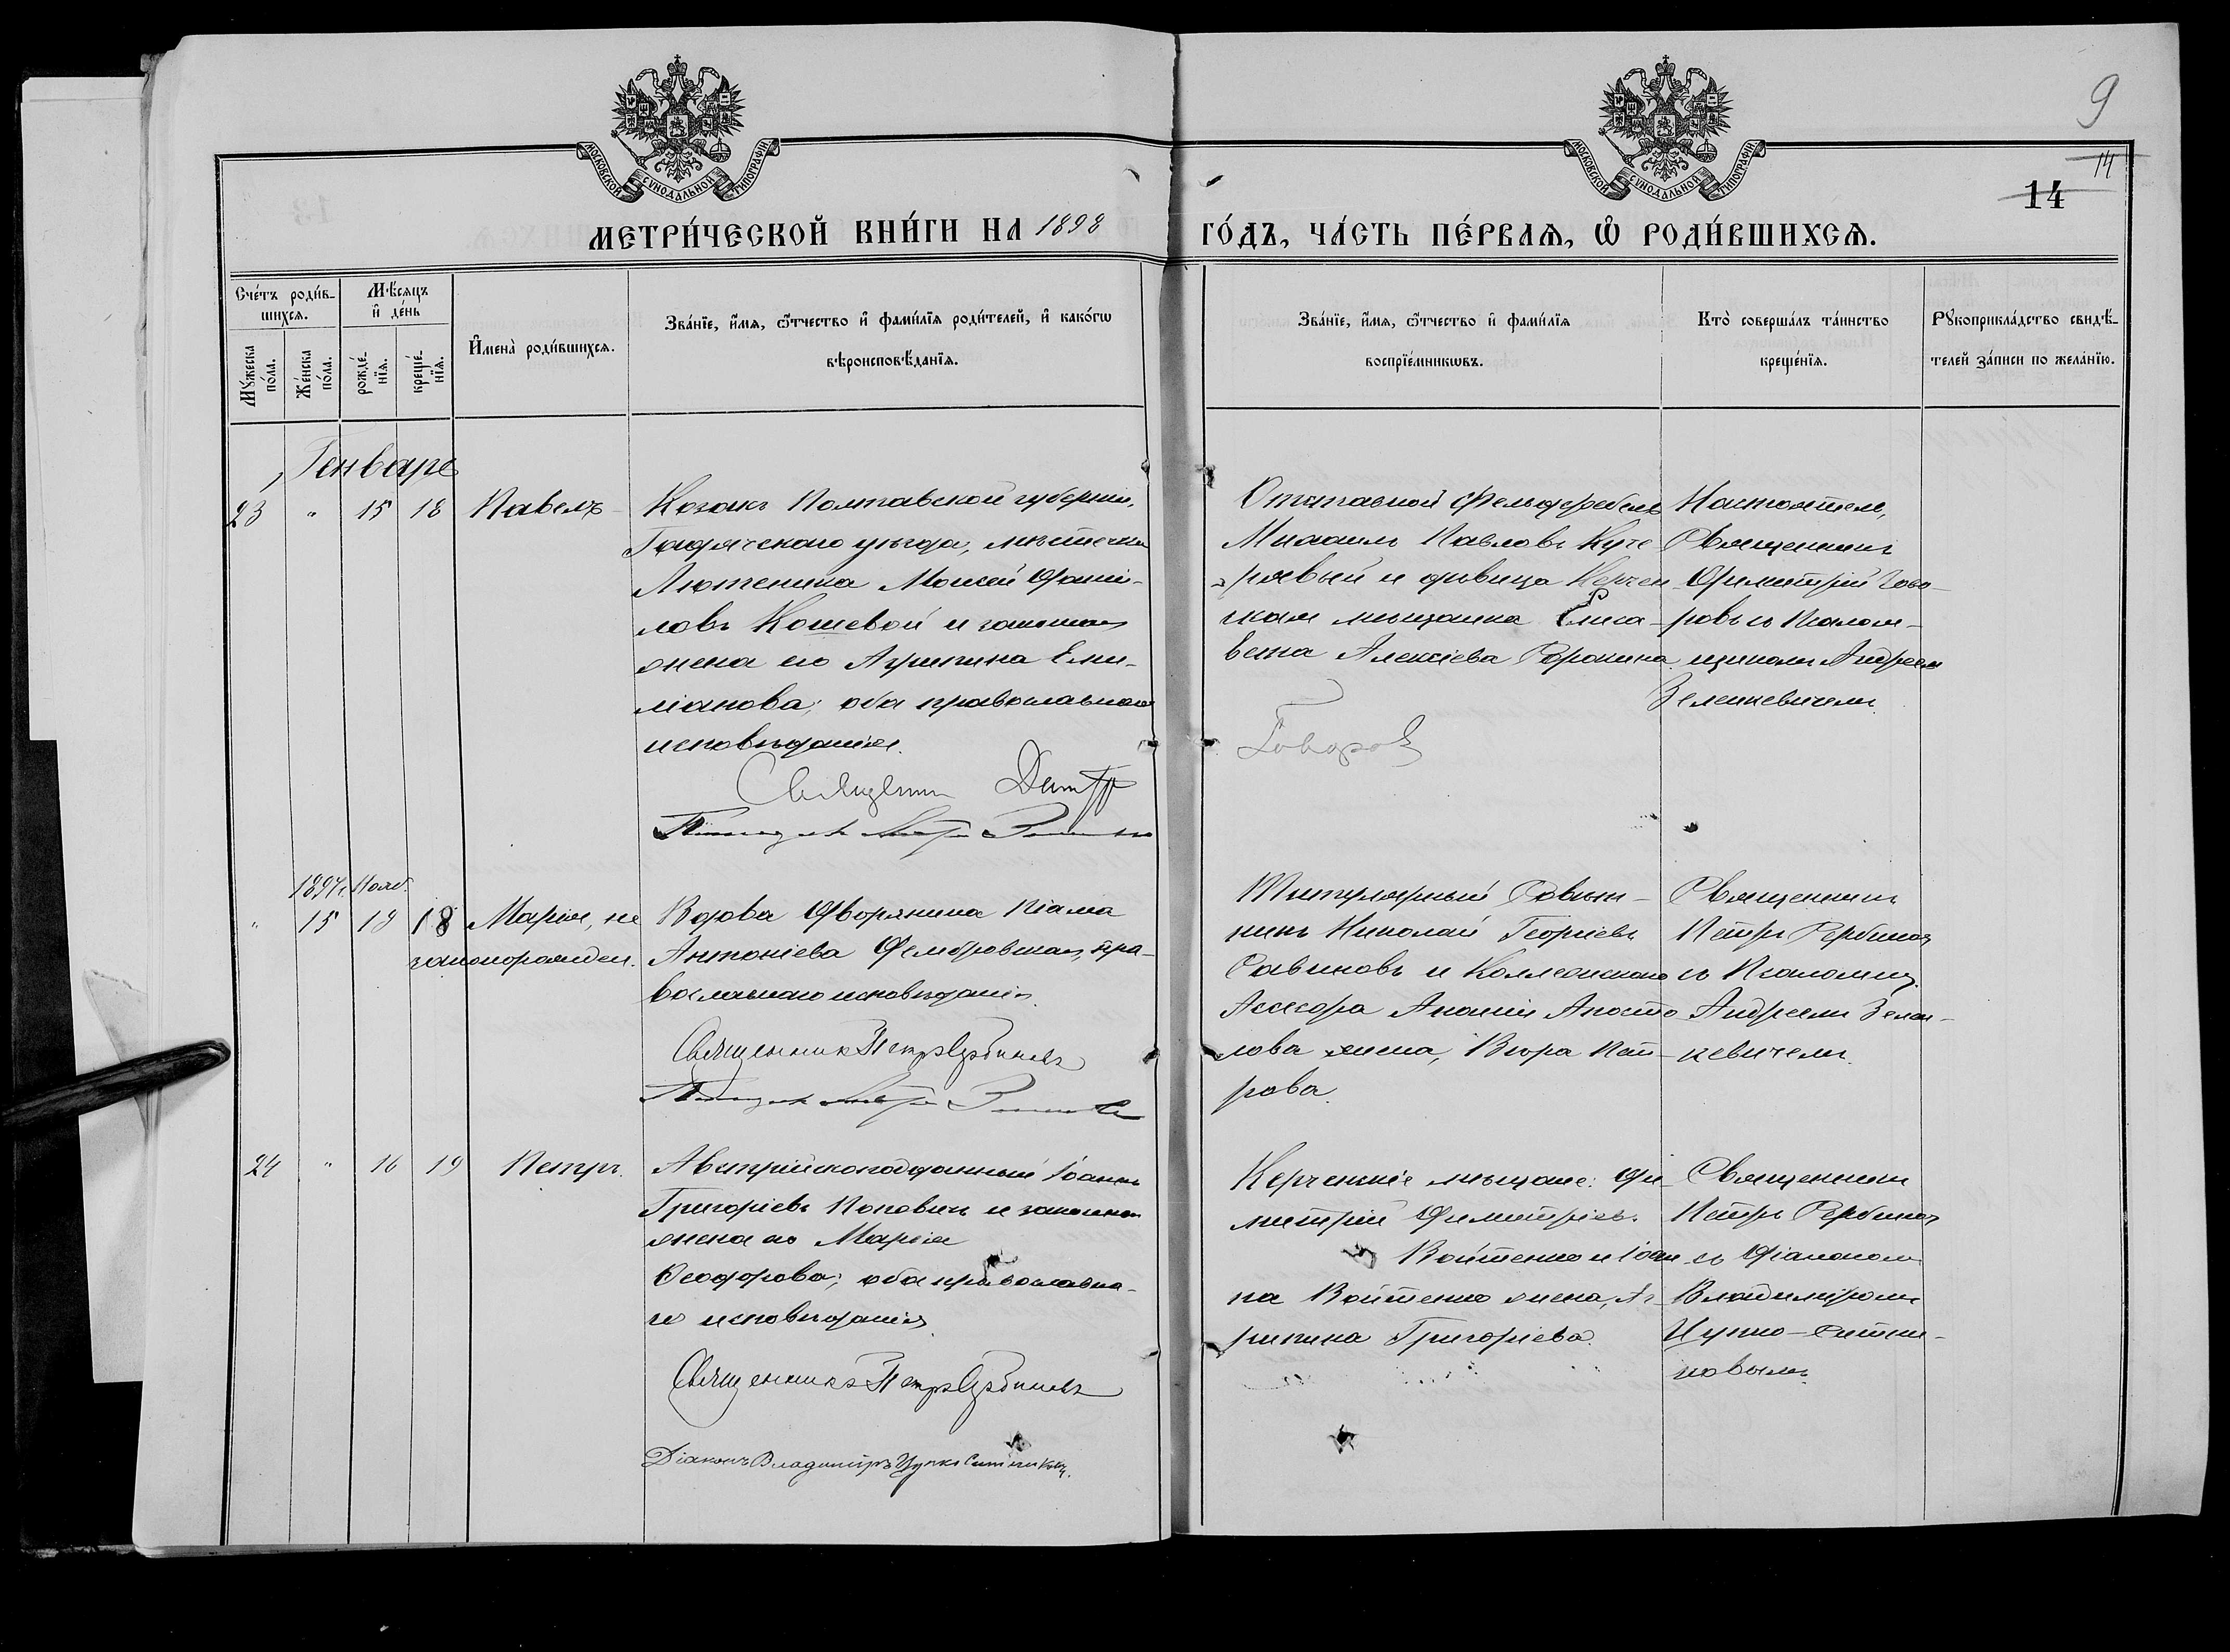 9
14
14
МОСКОВСКОЙ СѴНОДАЛЬНОЙ ТИПОГРАФІИ
МОСКОВСКОЙ СѴНОДАЛЬНОЙ ТИПОГРАФІИ
МЕТРИ́ЧЕСКОЙ КНИ́ГИ НА 1898
ГО́ДЪ, ЧА́СТЬ ПЕ́РВАѦ, Ѡ҆ РОДИ́ВШИХСѦ.
Сче́тъ роди́в-
шихсѧ.
Мꙋ́жеска
по́ла.
Же́нска
по́ла.
Мѣ́сѧцъ
и҆ де́нь
рожде́-
нїѧ.
креще́-
нїѧ.
И҆мена̀ роди́вшихсѧ.
Зва́нїе, и҆́мѧ, ѻ҆́тчество и҆ фами́лїѧ роди́телей, и҆ како́гѡ
вѣроисповѣ́данїѧ.
Зва́нїе, и҆́мѧ, ѻ҆́тчество и҆ фами́лїѧ
воспрїе́мникѡвъ.
Кто̀ соверша́лъ та́инство
креще́нїѧ.
Рꙋкоприкла́дство свидѣ́-
телей за́писи по жела́нїю.
Генваре
23 " 15 18 Павелъ
Козакъ Полтавской губерніи,
Гадячскаго уѣзда, мѣстечка
Лютенька Моисей Дани-
ловъ Кошевой и законная
жена его Агрипина Еми-
ліанова; оба православнаго
исповѣданія.
Священникъ Димитр
Отставной Фельдфебель
Михаилъ Павловъ Куче
рявый и дѣвица Керчен-
ская мѣщанка Елиса-
вета Алексіева Сорокина.
Говоров
Настоятель,
Священникъ
Димитрій Гово-
ровъ съ Псалом-
щикомъ Андреем
Зеленкевичемъ
1897 г. Нояб.
" 15 18 18 Марія, не
законорожден.
Вдова Дворянина Піама
Антоніева Дембровская, пра-
вославнаго исповѣданія.
Священникъ Петръ Сербиновъ
Титулярный Совѣт-
никъ Николай Георгіевъ
Савиновъ и Коллежскаго
Асесора Апосто
лова жена, Вѣра Пет-
рова.
Священникъ
Петръ Сербиновъ
съ Псаломщ.
Андреемъ Зелен-
кевичемъ.
24 " 16 19 Петръ.
Австрійскоподданный Іоаннъ
Григоріевъ Поповичъ и законная
жена его Марія
Ѳеодорова; оба православна-
го исповѣданія
Священникъ Петръ Сербиновъ
Діаконъ Владиміръ Цупко Ситниковъ.
Керченскіе мѣщане: Ди-
митрій Димитріевъ
Войтенко и Іоан
на Войтенко жена, Аг-
рипина Григоріева.
Священникъ
Петръ Сербиновъ
съ Діакономъ
Владиміромъ
Цупко-Ситни-
ковымъ.